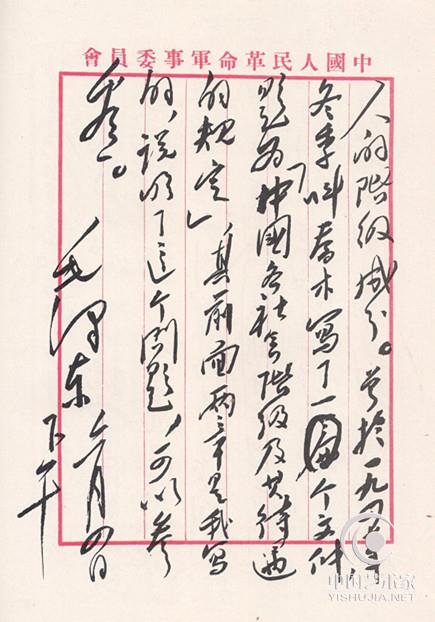 中國人民革命軍事委員會
人的階級成分。曾於一九四七年
冬季叫喬木寫了一个文件,
題为「中國各社会階級及其待遇
的規定」,其前面兩章是我寫
的,說明了這个問題,可以參
看。
毛澤东
六月四日
下午
中国艺术家
YISHUJIA.NET